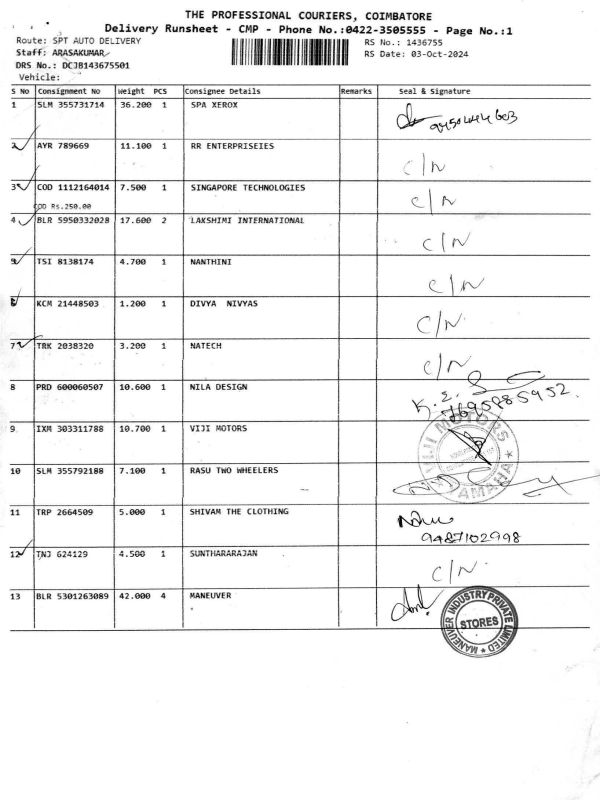 THE PROFESSIONAL COURIERS, COIMBATORE
Delivery Runsheet - CMP - Phone No.:0422-3505555 - Page No.:1
Route: SPT AUTO DELIVERY RS No.: 1436755
Staff: ARASAKUMAR RS Date: 03-Oct-2024
DRS No.: DCJB143675501
Vehicle:
S No Consignment No Weight PCS Consignee Details Remarks Seal & Signature
1 SLM 355731714 36.200 1 SPA XEROX
2 AYR 789669 11.100 1 RR ENTERPRISEIES C/N
3 COD 1112164014 7.500 1 SINGAPORE TECHNOLOGIES C/N
COD Rs.250.00
4 BLR 5950332028 17.600 2 LAKSHIMI INTERNATIONAL C/N
5 TSI 8138174 4.700 1 NANTHINI C/N
6 KCM 21448503 1.200 1 DIVYA NIVYAS C/N
7 TRK 2038320 3.200 1 NATECH C/N
8 PRD 600060507 10.600 1 NILA DESIGN
7695985952
9 IXM 303311788 10.700 1 VIJI MOTORS VIJI MOTORS
YAMAHA
10 SLM 355792188 7.100 1 RASU TWO WHEELERS
11 TRP 2664509 5.000 1 SHIVAM THE CLOTHING
9487102998
12 TNJ 624129 4.500 1 SUNTHARARAJAN C/N
13 BLR 5301263089 42.000 4 MANEUVER MANEUVER INDUSTRY PRIVATE LIMITED
STORES